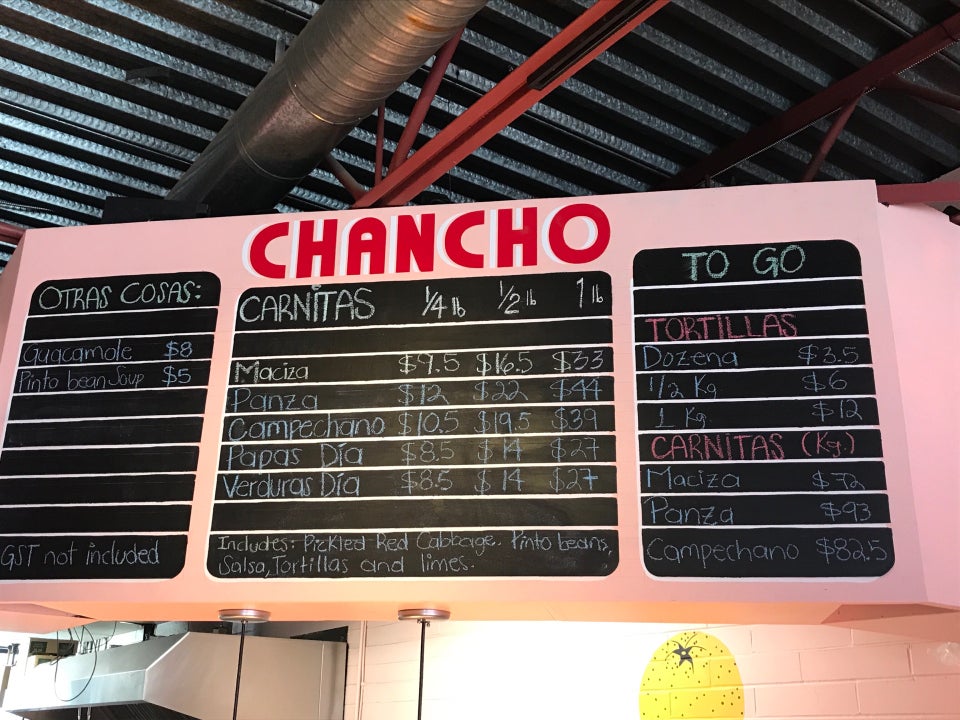 CHANCHO
OTRAS COSAS:
Guacamole $8
Pinto bean Soup $5
GST not included
CARNITAS 1/4 lb 1/2 lb 1 lb
Maciza $9.5 $16.5 $33
Panza $12 $22 $44
Campechano $10.5 $19.5 $39
Papas Día $8.5 $14 $27
Verduras Día $8.5 $14 $27
Includes: Pickled Red Cabbage. Pinto beans,
Salsa, Tortillas and limes.
TO GO
TORTILLAS
Dozena $3.5
1/2 Kg $6
1 Kg. $12
CARNITAS (Kg.)
Maciza $72
Panza $93
Campechano $82.5